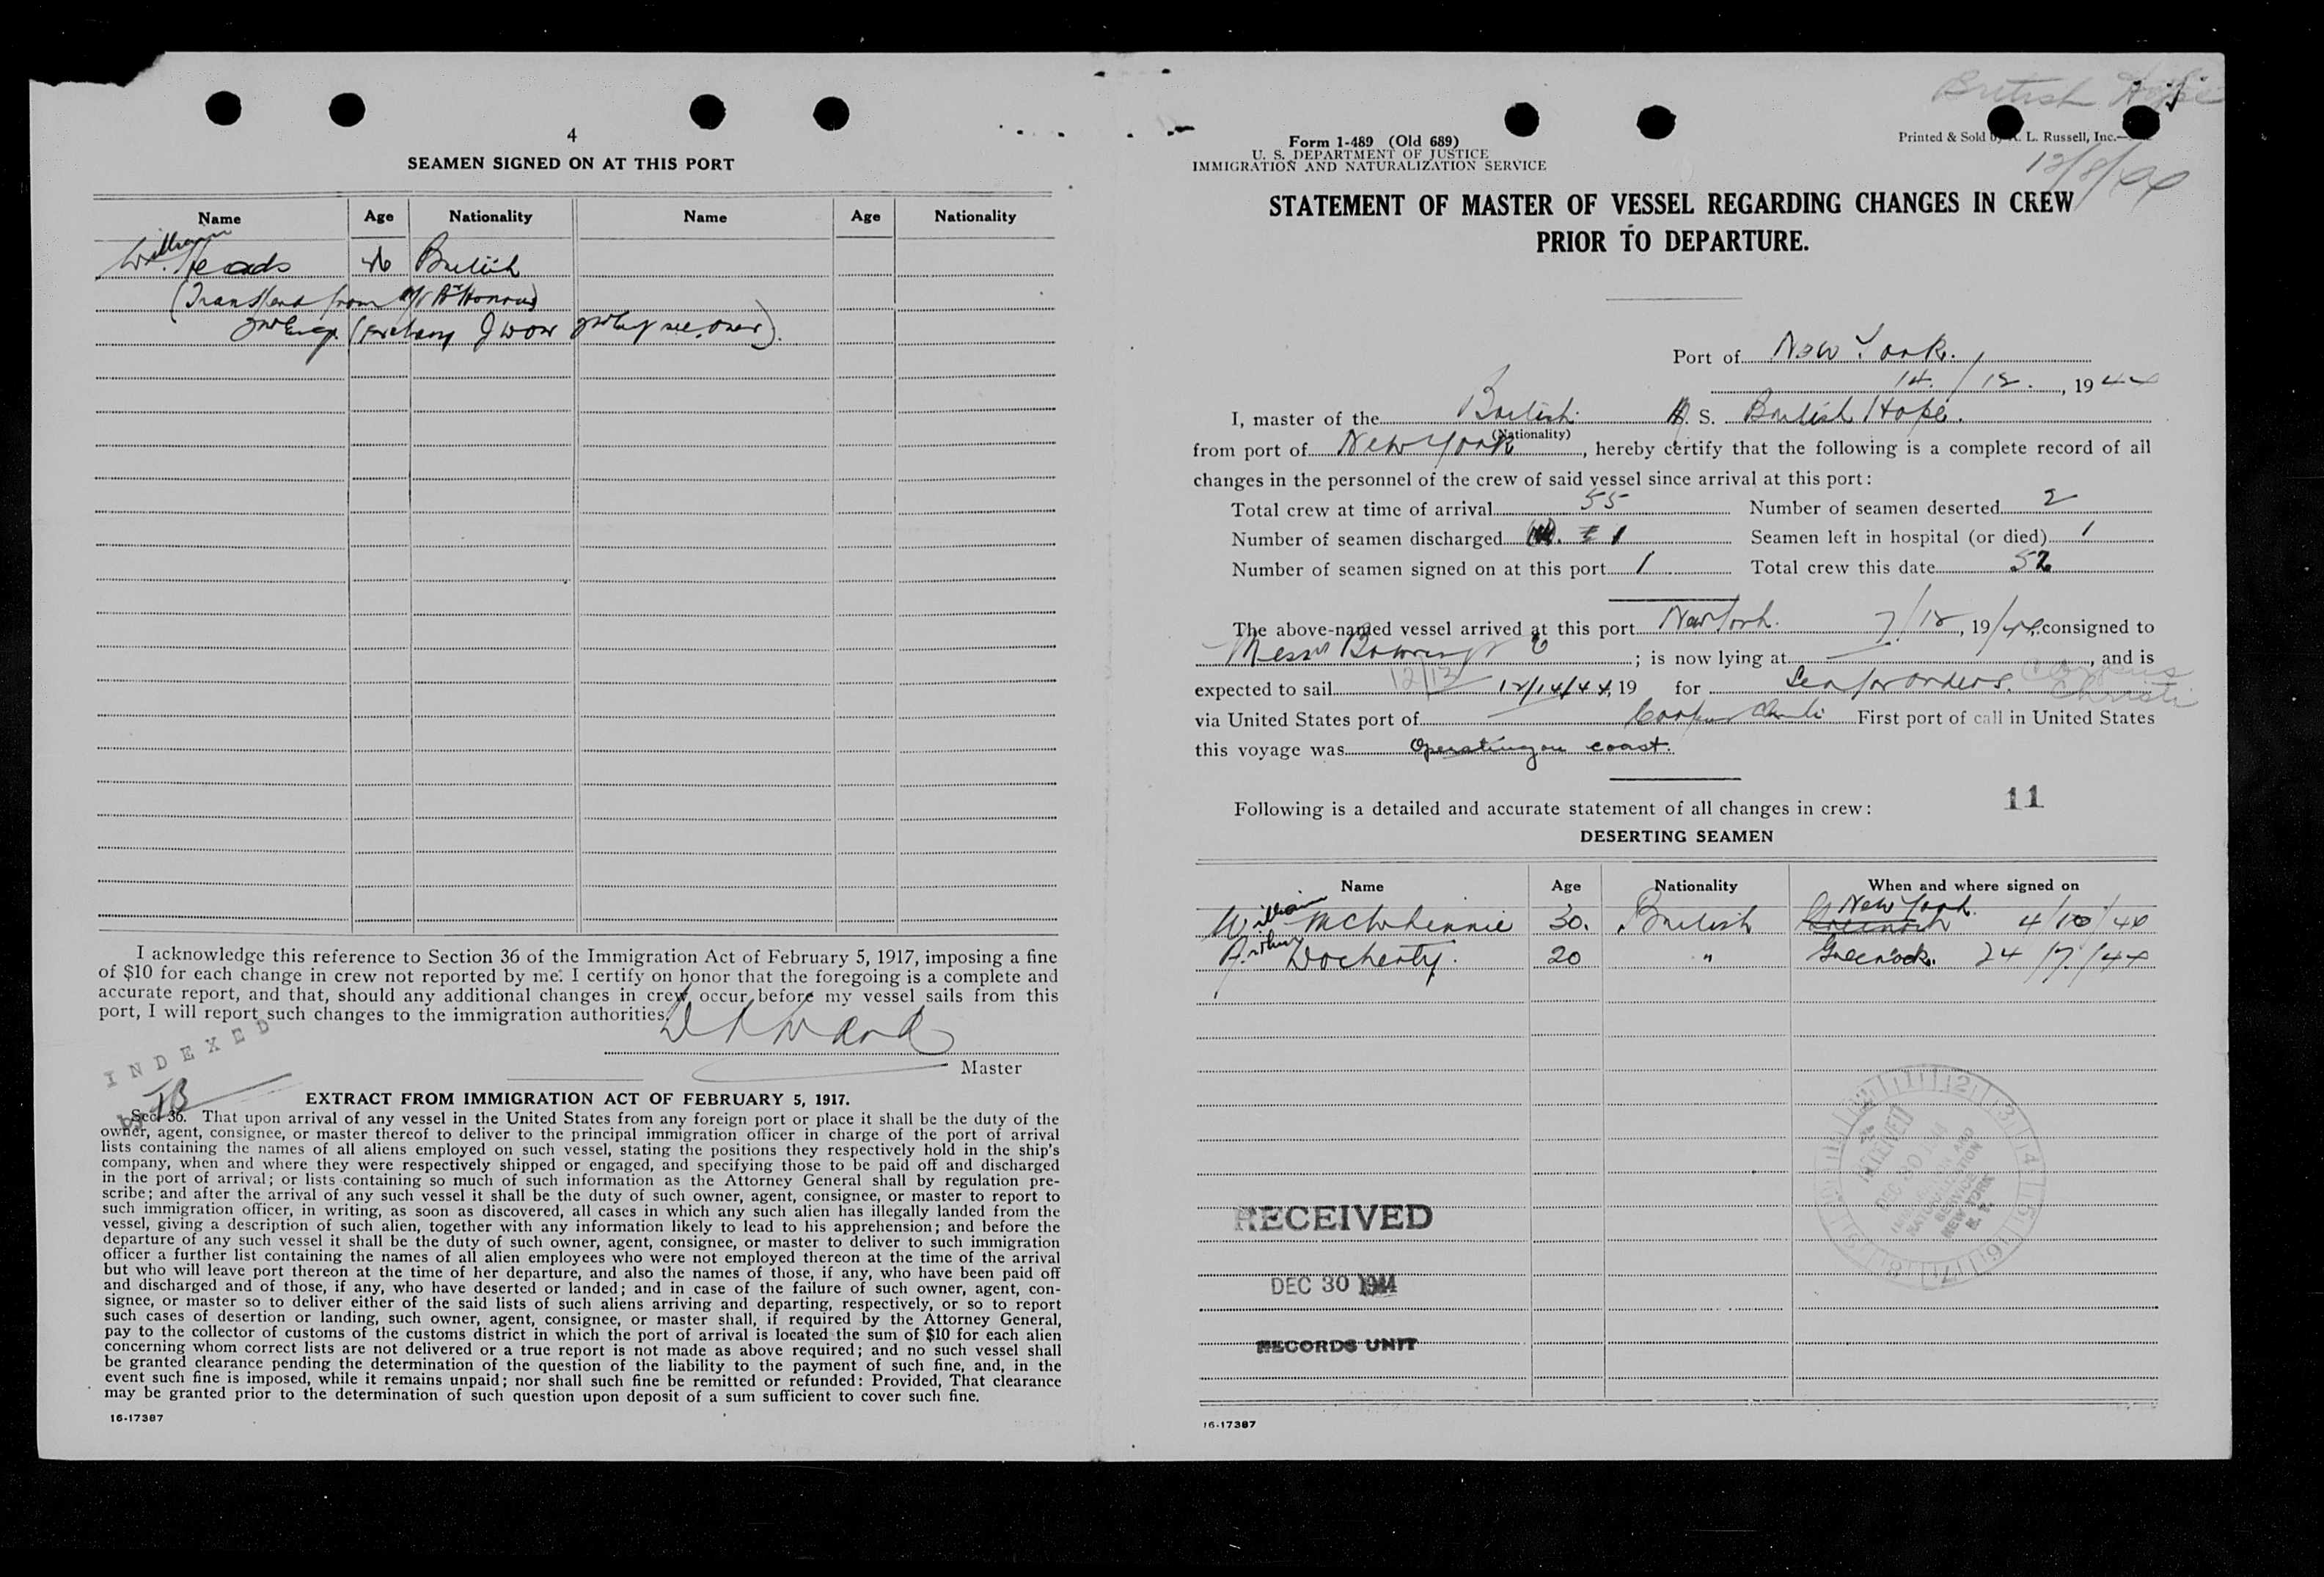 4
SEAMEN SIGNED ON AT THIS PORT
Name Age Nationality Name Age Nationality
William
Heads British
(Transferred from M/V Br Honour)
I acknowledge this reference to Section 36 of the Immigration Act of February 5, 1917, imposing a fine
of $10 for each change in crew not reported by me. I certify on honor that the foregoing is a complete and
accurate report, and that, should any additional changes in crew occur before my vessel sails from this
port, I will report such changes to the immigration authorities.
Master
INDEXED
by
EXTRACT FROM IMMIGRATION ACT OF FEBRUARY 5, 1917.
Sec. 36. That upon arrival of any vessel in the United States from any foreign port or place it shall be the duty of the
owner, agent, consignee, or master thereof to deliver to the principal immigration officer in charge of the port of arrival
lists containing the names of all aliens employed on such vessel, stating the positions they respectively hold in the ship's
company, when and where they were respectively shipped or engaged, and specifying those to be paid off and discharged
in the port of arrival; or lists containing so much of such information as the Attorney General shall by regulation pre-
scribe; and after the arrival of any such vessel it shall be the duty of such owner, agent, consignee, or master to report to
such immigration officer, in writing, as soon as discovered, all cases in which any such alien has illegally landed from the
vessel, giving a description of such alien, together with any information likely to lead to his apprehension; and before the
departure of any such vessel it shall be the duty of such owner, agent, consignee, or master to deliver to such immigration
officer a further list containing the names of all alien employees who were not employed thereon at the time of the arrival
but who will leave port thereon at the time of her departure, and also the names of those, if any, who have been paid off
and discharged and of those, if any, who have deserted or landed; and in case of the failure of such owner, agent, con-
signee, or master so to deliver either of the said lists of such aliens arriving and departing, respectively, or so to report
such cases of desertion or landing, such owner, agent, consignee, or master shall, if required by the Attorney General,
pay to the collector of customs of the customs district in which the port of arrival is located the sum of $10 for each alien
concerning whom correct lists are not delivered or a true report is not made as above required; and no such vessel shall
be granted clearance pending the determination of the question of the liability to the payment of such fine, and, in the
event such fine is imposed, while it remains unpaid; nor shall such fine be remitted or refunded: Provided, That clearance
may be granted prior to the determination of such question upon deposit of a sum sufficient to cover such fine.
16-17387
British Hope
Form I-489 (Old 689)
U. S. DEPARTMENT OF JUSTICE
IMMIGRATION AND NATURALIZATION SERVICE
Printed & Sold by L. Russell, Inc.
12/8/44
STATEMENT OF MASTER OF VESSEL REGARDING CHANGES IN CREW
PRIOR TO DEPARTURE.
Port of New York.
14/12., 1944
I, master of the British S. S. British Hope.
(Nationality)
from port of New York, hereby certify that the following is a complete record of all
changes in the personnel of the crew of said vessel since arrival at this port:
Total crew at time of arrival 55 Number of seamen deserted 2
Number of seamen discharged 1 Seamen left in hospital (or died) 1
Number of seamen signed on at this port 1 Total crew this date 52
The above-named vessel arrived at this port New York. 7/12, 19/44. consigned to
Messrs Bowring & Co; is now lying at , and is
expected to sail 12/13 12/14/44, 19 for Sea for orders. Corpus Christi
via United States port of Corpus Christi First port of call in United States
this voyage was Operating on coast.
Following is a detailed and accurate statement of all changes in crew: 11
DESERTING SEAMEN
Name Age Nationality When and where signed on
William McWhinnie 30. British New York. 4/10/44
Arthur Docherty. 20 " Greenock. 24/7/44
RECEIVED
DEC 30 1944
IMMIGRATION AND
NATURALIZATION
SERVICE
NEW YORK
N. Y.
RECEIVED
DEC 30 1944
RECORDS UNIT
16-17387